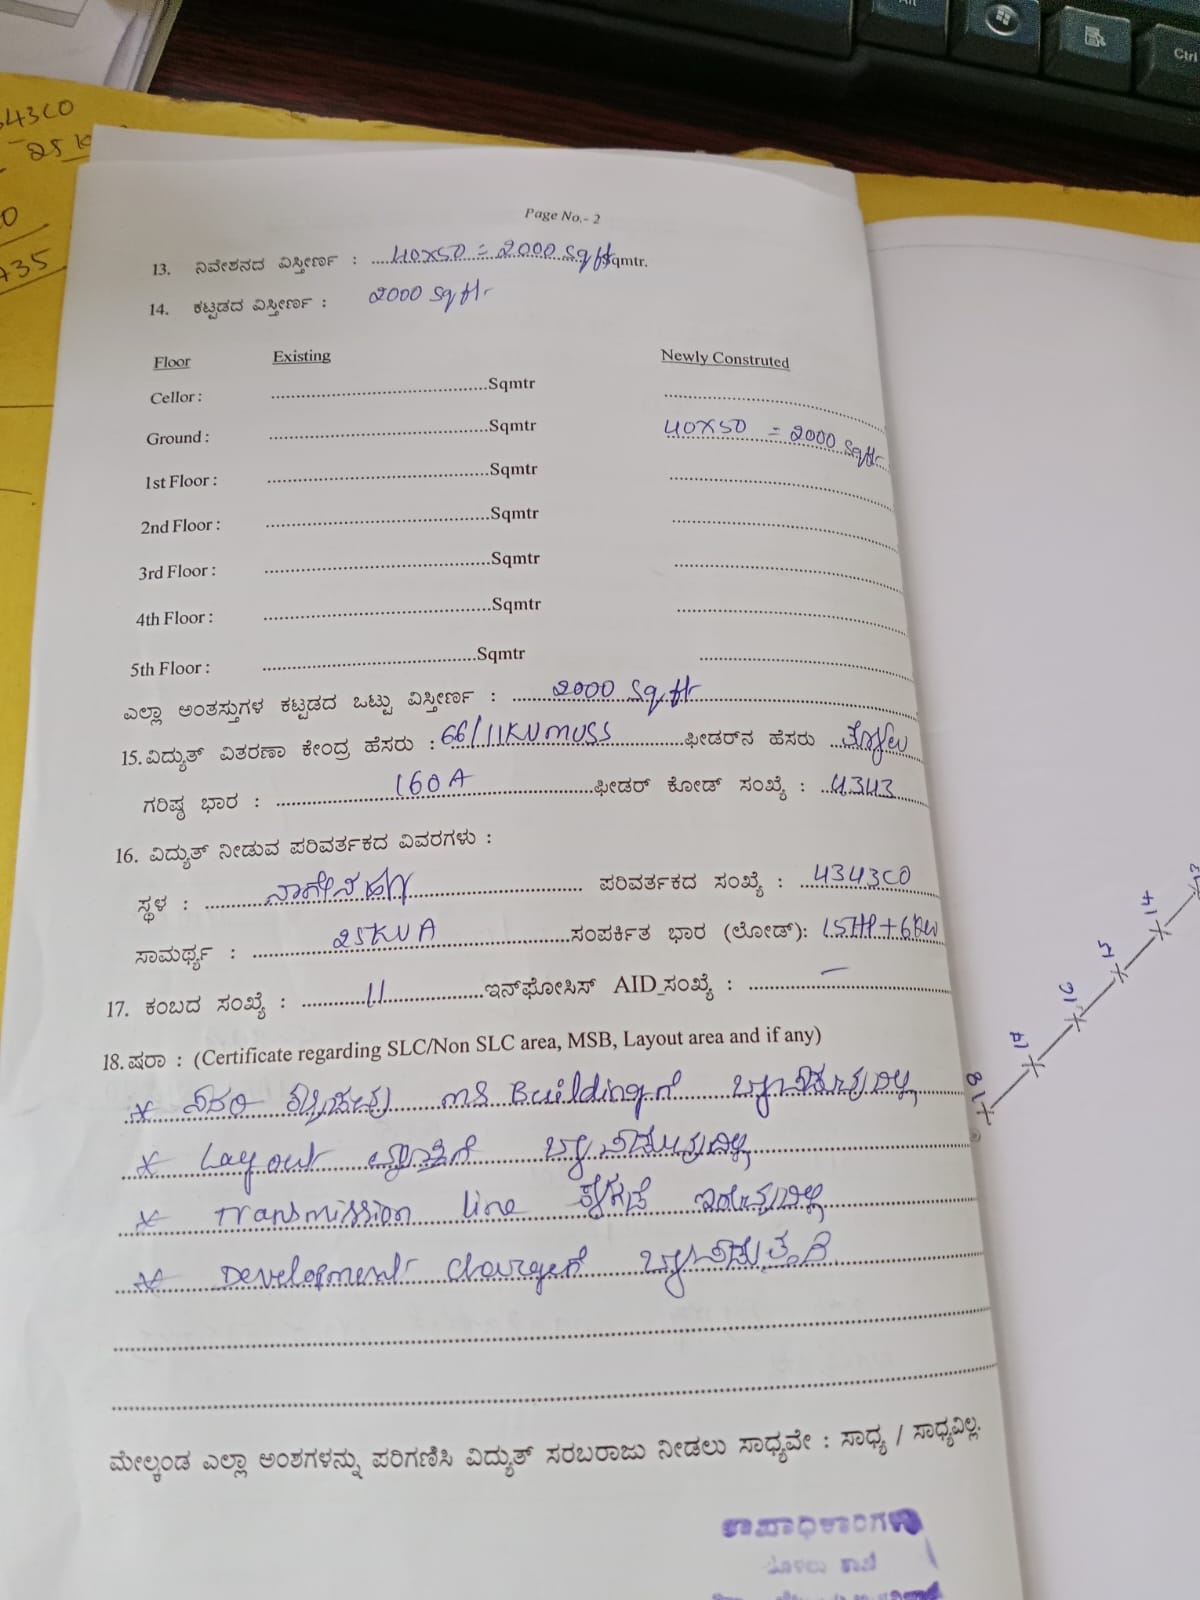 Alt
Ctrl
43C0
25 K
0
735
Page No.- 2
13. ನಿವೇಶನದ ವಿಸ್ತೀರ್ಣ : 40X50 = 2000 sqft Sqmtr.
14. ಕಟ್ಟಡದ ವಿಸ್ತೀರ್ಣ : 2000 sqft
Floor Existing Newly Construted
Cellor : Sqmtr
Ground : Sqmtr 40X50 = 2000 sqft
1st Floor : Sqmtr
2nd Floor : Sqmtr
3rd Floor : Sqmtr
4th Floor : Sqmtr
5th Floor : Sqmtr
ಎಲ್ಲಾ ಅಂತಸ್ತುಗಳ ಕಟ್ಟಡದ ಒಟ್ಟು ವಿಸ್ತೀರ್ಣ : 2000 sq.ft
15. ವಿದ್ಯುತ್ ವಿತರಣಾ ಕೇಂದ್ರ ಹೆಸರು : 66/11KV MUSS ಫೀಡರ್‌ನ ಹೆಸರು
ಗರಿಷ್ಠ ಭಾರ : 160A ಫೀಡರ್ ಕೋಡ್ ಸಂಖ್ಯೆ : 4343
16. ವಿದ್ಯುತ್ ನೀಡುವ ಪರಿವರ್ತಕದ ವಿವರಗಳು :
ಸ್ಥಳ : ಪರಿವರ್ತಕದ ಸಂಖ್ಯೆ : 4343C0
ಸಾಮರ್ಥ್ಯ : 25KVA ಸಂಪರ್ಕಿತ ಭಾರ (ಲೋಡ್): 15HP+6KW
17. ಕಂಬದ ಸಂಖ್ಯೆ : 11 ಇನ್‌ಫೋಸಿಸ್ AID ಸಂಖ್ಯೆ : –
18. ಷರಾ : (Certificate regarding SLC/Non SLC area, MSB, Layout area and if any)
* ಸದರಿ ಕಟ್ಟಡವು MS Buildingಗೆ ಒಳಪಡುವುದಿಲ್ಲ
* Layout ವ್ಯಾಪ್ತಿಗೆ ಒಳಪಡುವುದಿಲ್ಲ
* Transmission line ಕೆಳಗಡೆ ಇರುವುದಿಲ್ಲ
* Development chargeಗೆ ಒಳಪಡುತ್ತದೆ
ಮೇಲ್ಕಂಡ ಎಲ್ಲಾ ಅಂಶಗಳನ್ನು ಪರಿಗಣಿಸಿ ವಿದ್ಯುತ್ ಸರಬರಾಜು ನೀಡಲು ಸಾಧ್ಯವೇ : ಸಾಧ್ಯ / ಸಾಧ್ಯವಿಲ್ಲ.
14
15
16
17
18